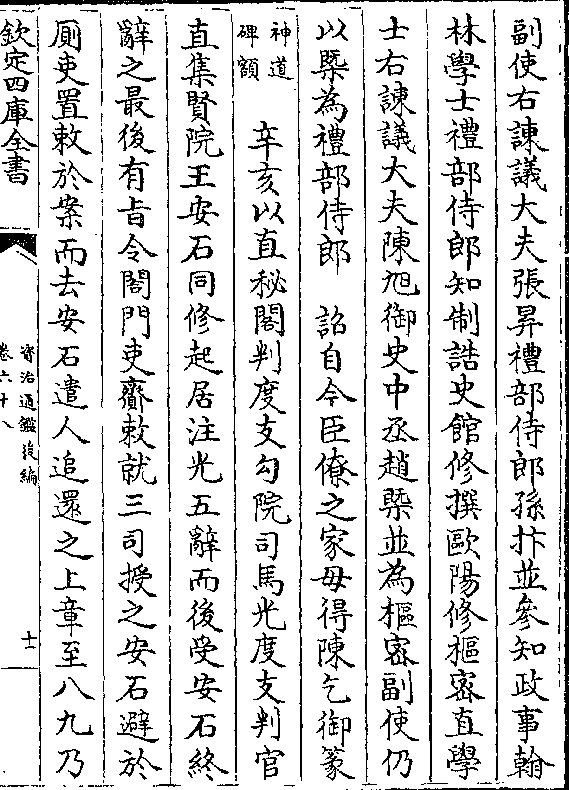 副使右諫議大夫張昇禮部侍郎孫抃並參知政事翰
林學士禮部侍郎知制誥史館修撰歐陽修樞密直學
士右諫議大夫陳旭御史中丞趙槩並為樞密副使仍
以槩為禮部侍郎　詔自今臣僚之家毋得陳乞御篆
神道
碑額
辛亥以直秘閣判度支勾院司馬光度支判官
直集賢院王安石同修起居注光五辭而後受安石終
辭之最後有旨令閤門吏齎敕就三司授之安石避於
厠吏置敕於案而去安石遣人追還之上章至八九乃
欽定四庫全書
資治通鑑後編
卷六十八
十一